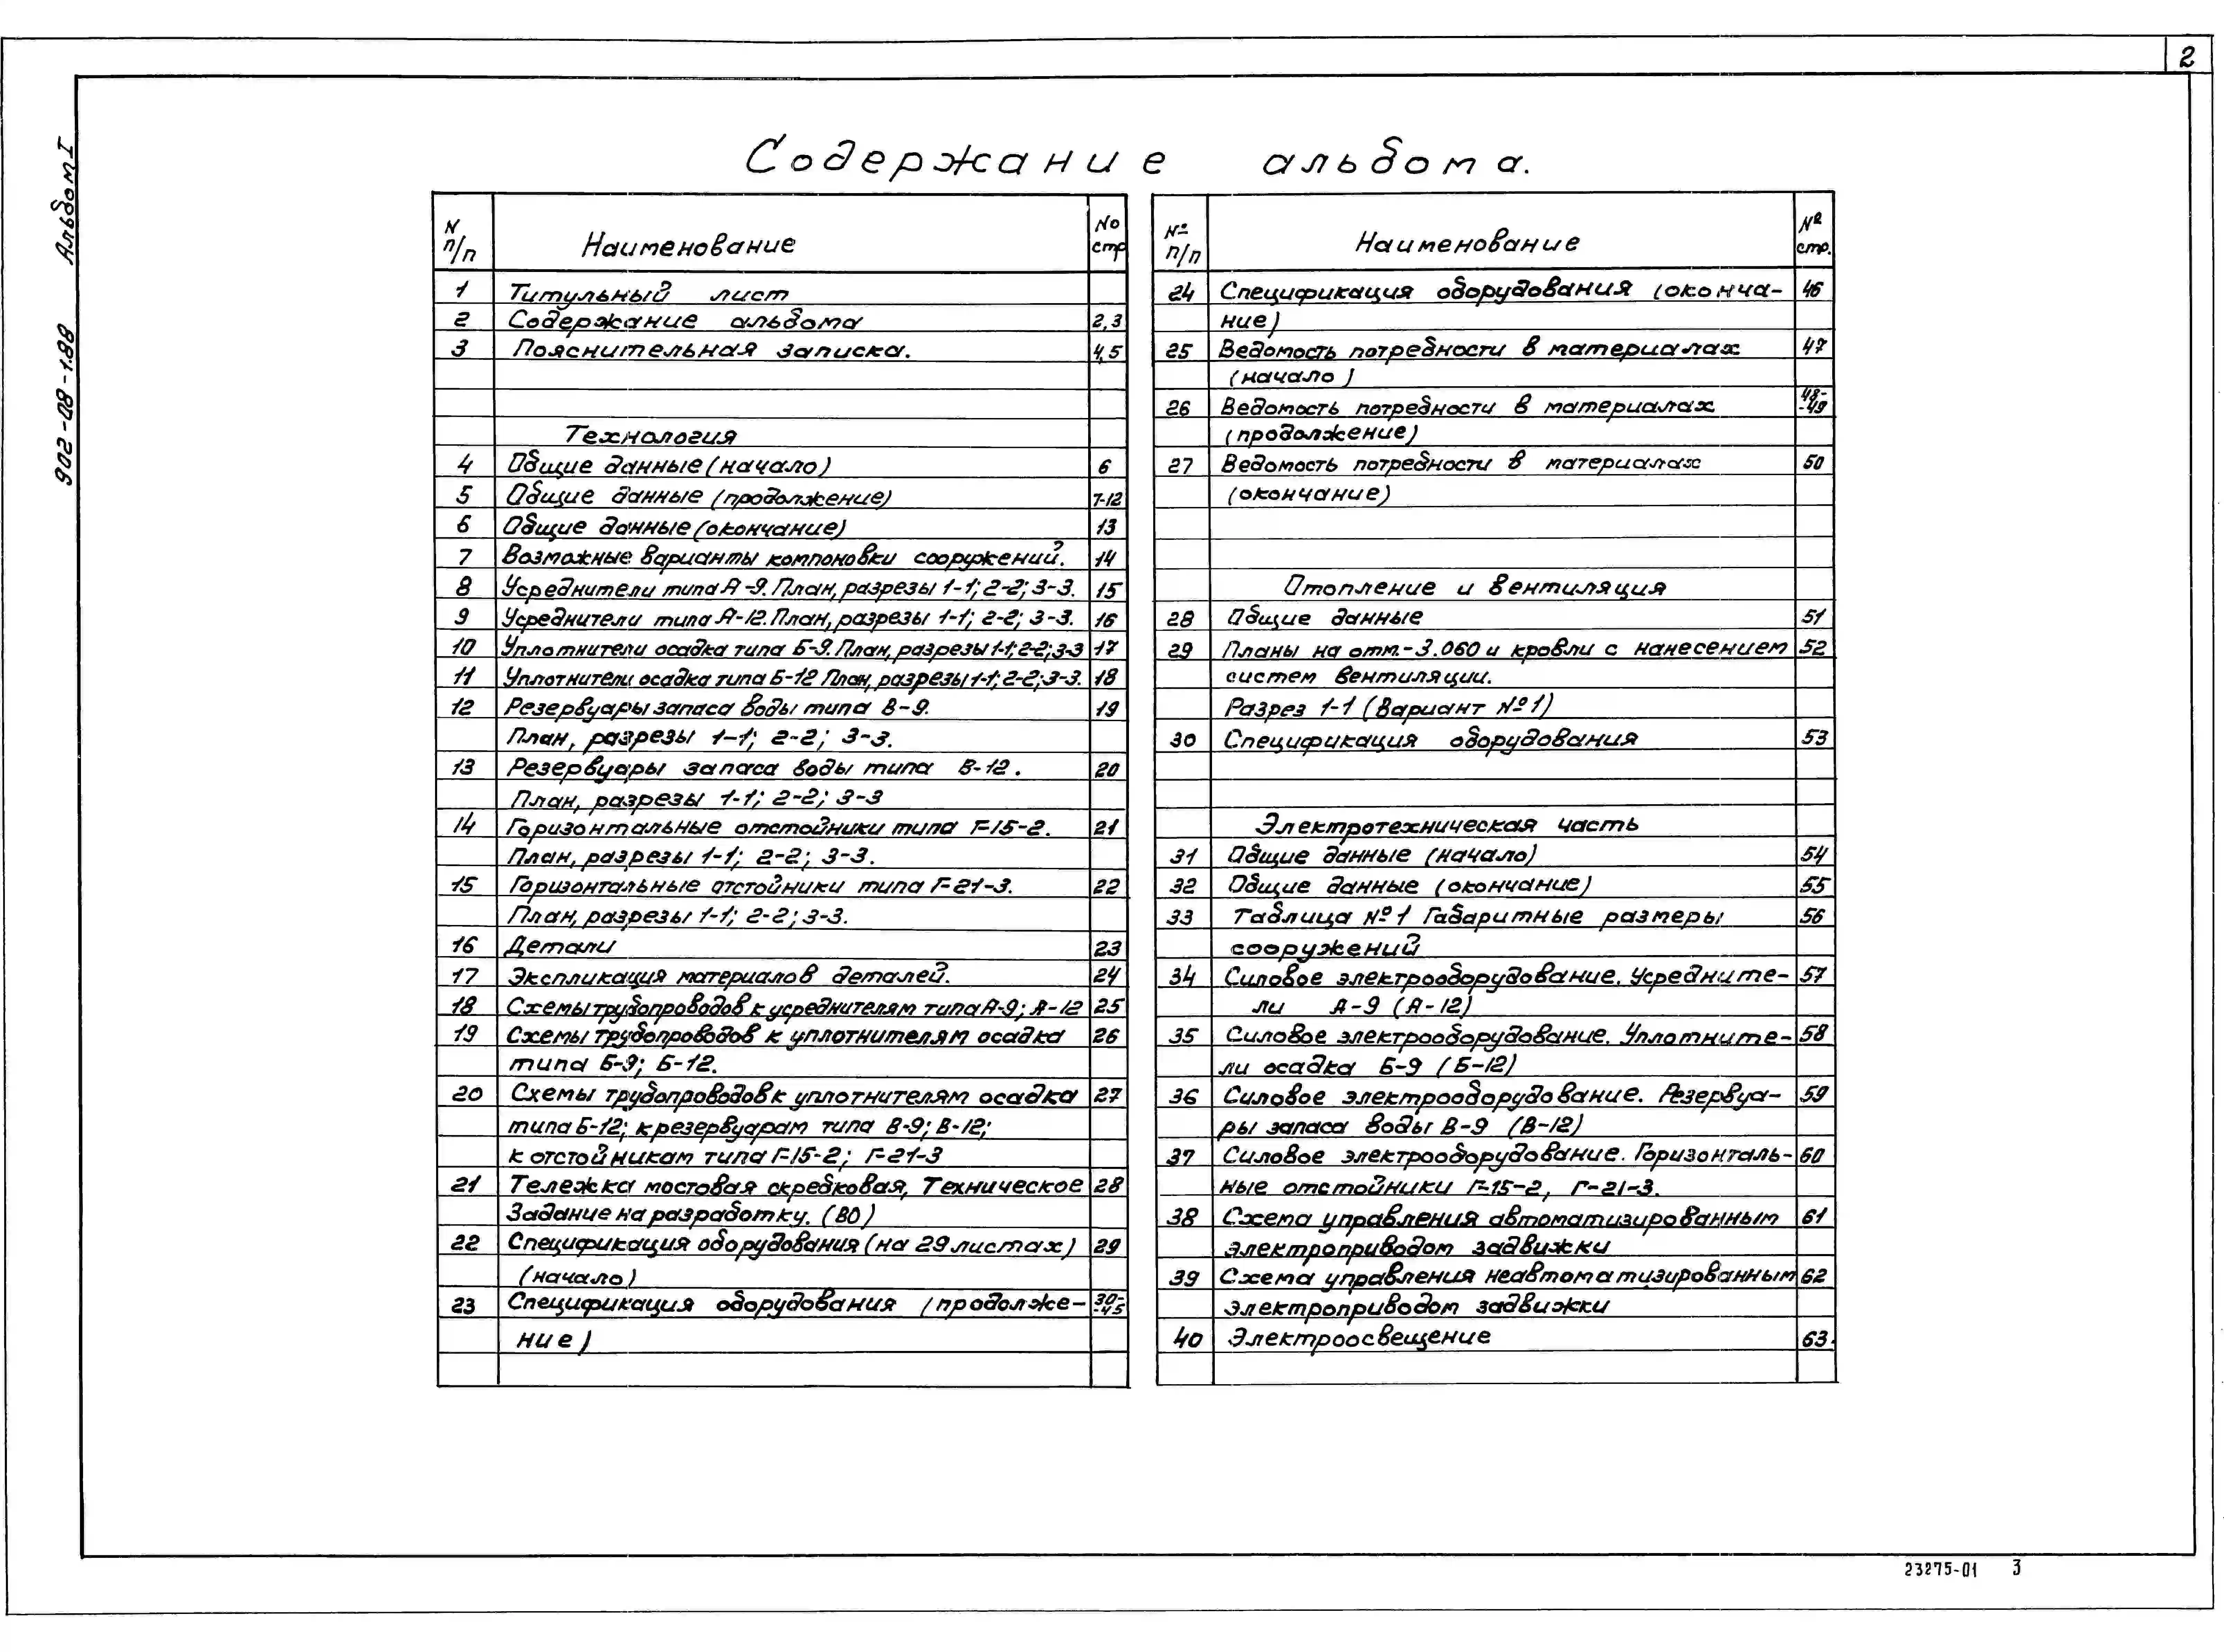 2
Альбом I
902-08-1.88
Содержание альбома.
N п/п Наименование No стр
1 Титульный лист
2 Содержание альбома 2,3
3 Пояснительная записка. 4,5
Технология
4 Общие данные (начало) 6
5 Общие данные (продолжение) 7-12
6 Общие данные (окончание) 13
7 Возможные варианты компоновки сооружений. 14
8 Усреднители типа А-9. План, разрезы 1-1; 2-2; 3-3. 15
9 Усреднители типа А-12. План, разрезы 1-1; 2-2; 3-3. 16
10 Уплотнители осадка типа Б-9. План, разрезы 1-1; 2-2; 3-3 17
11 Уплотнители осадка типа Б-12 План, разрезы 1-1; 2-2; 3-3. 18
12 Резервуары запаса воды типа В-9. 19
План, разрезы 1-1; 2-2; 3-3.
13 Резервуары запаса воды типа В-12. 20
План, разрезы 1-1; 2-2; 3-3
14 Горизонтальные отстойники типа Г-15-2. 21
План, разрезы 1-1; 2-2; 3-3.
15 Горизонтальные отстойники типа Г-21-3. 22
План, разрезы 1-1; 2-2; 3-3.
16 Детали 23
17 Экспликация материалов деталей. 24
18 Схемы трубопроводов к усреднителям типа А-9; А-12 25
19 Схемы трубопроводов к уплотнителям осадка 26
типа Б-9; Б-12.
20 Схемы трубопроводов к уплотнителям осадка 27
типа Б-12; к резервуарам типа В-9; В-12;
к отстойникам типа Г-15-2; Г-21-3
21 Тележка мостовая скребковая, Техническое 28
Задание на разработку. (ВО)
22 Спецификация оборудования (на 29 листах) 29
(начало)
23 Спецификация оборудования (продолже- 30-
-45
ние)
№ п/п Наименование № стр.
24 Спецификация оборудования (оконча- 46
ние)
25 Ведомость потребности в материалах 47
(начало)
26 Ведомость потребности в материалах 48-
-49
(продолжение)
27 Ведомость потребности в материалах 50
(окончание)
Отопление и вентиляция
28 Общие данные 51
29 Планы на отм.-3.060 и кровли с нанесением 52
систем вентиляции.
Разрез 1-1 (Вариант №1)
30 Спецификация оборудования 53
Электротехническая часть
31 Общие данные (начало) 54
32 Общие данные (окончание) 55
33 Таблица №1 Габаритные размеры 56
сооружений
34 Силовое электрооборудование. Усредните- 57
ли А-9 (А-12)
35 Силовое электрооборудование. Уплотните- 58
ли осадка Б-9 (Б-12)
36 Силовое электрооборудование. Резервуа- 59
ры запаса воды В-9 (В-12)
37 Силовое электрооборудование. Горизонталь- 60
ные отстойники Г-15-2, Г-21-3.
38 Схема управления автоматизированным 61
электроприводом задвижки
39 Схема управления неавтоматизированным 62
электроприводом задвижки
40 Электроосвещение 63.
23275-01 3